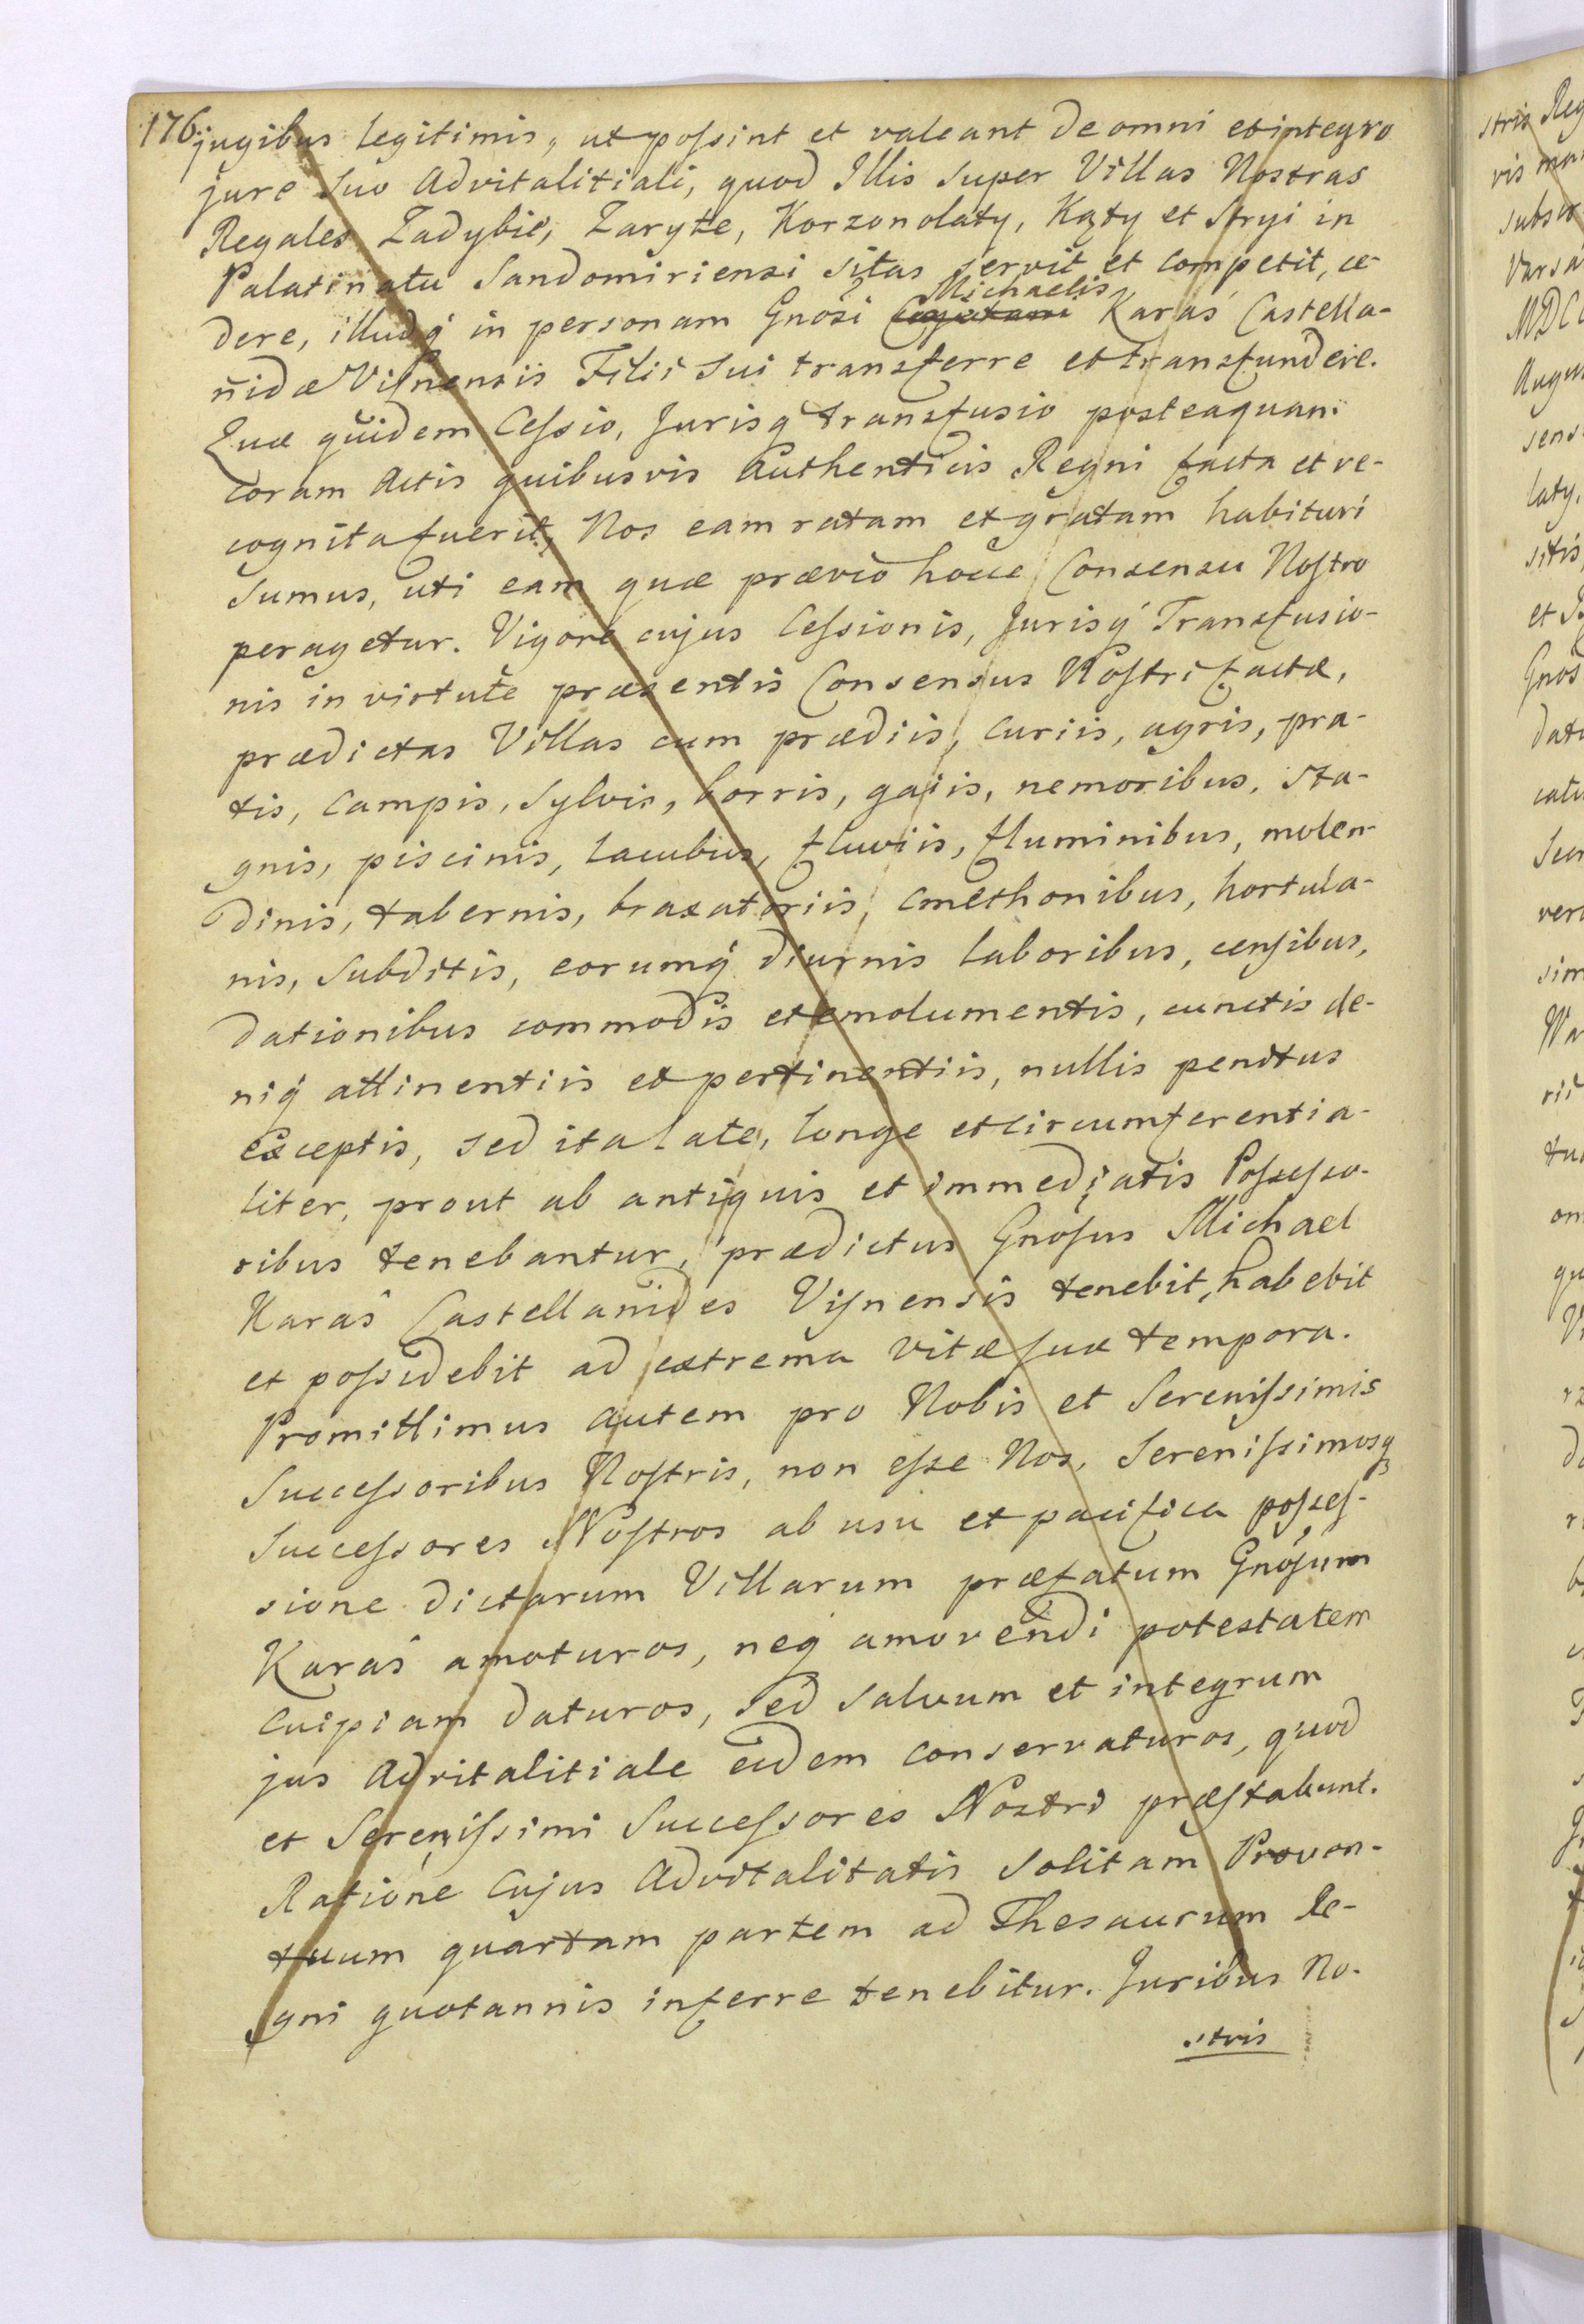 176.
jugibus legitimis, ut poſsint et valeant de omni et integro
jure suo Advitalitiali, quod Illis super Villas Nostras
Regales Zadybie, Zaryte, Korzonolaty, Kąty et Stryi in
Palatinatu Sandomiriensi sitas servit et competit, ce-
Michaelis
dere, illudq́ in personam Gnosi Karaś Castella-
nidæ Viſnensis Filii sui transferre et transfundere.
Quæ quidem Ceſsio, Jurisq transfusio posteaquam
coram Actis quibusvis Authenticis Regni facta et re-
cognita fuerit, Nos eam ratam et gratam habituri
sumus, uti eam quæ prævio hocce Consensu Noſtro
peragetur. Vigore cujus Ceſsionis, Jurisq́ Transfusio-
nis in virtute præsentis Consensus Noſtri factæ,
prædictas Villas cum prædiis, curiis, agris, pra-
tis, campis, sylvis, borris, gaiis, nemoribus, sta-
gnis, piscinis, lacubus, fluviis, fluminibus, molen-
dinis, tabernis, braxatoriis, cmethonibus, hortula-
nis, subditis, eorumq́ diurnis laboribus, cenſibus,
dationibus commodis et emolumentis, cunctis de-
niq́ attinentiis et pertinentiis, nullis penitus
exceptis, sed ita late, longe et circumferentia-
liter, prout ab antiquis et immediatis Poſseſso-
ribus tenebantur, prædictus Gnoſus Michael
Karaś Castellanides Viſnensis tenebit, habebit
et poſsidebit ad extrema vitæ ſuæ tempora.
Promittimus autem pro Nobis et Sereniſsimis
Succeſsoribus Noſtris, non eſse Nos, Sereniſsimosq
Succeſsores Noſtros ab usu et pacifica poſseſ-
sione dictarum Villarum præfatum Gnoſum
Karaś amoturos, neq́ amovendi potestatem
cuipiam daturos, sed salvum et integrum
jus Advitalitiale eidem conservaturos, quod
et Sereniſsimi Succeſsores Nostri præſtabunt.
Ratione cujus Advitalitatis solitam Proven-
tuum quartam partem ad Thesaurum Re-
gni quotannis inferre tenebitur. Juribus No-
stris
stris Reg
vis
subscr
Varsa
MDCC
Augus
sens
laty,
sitis
et
Gnos
datu